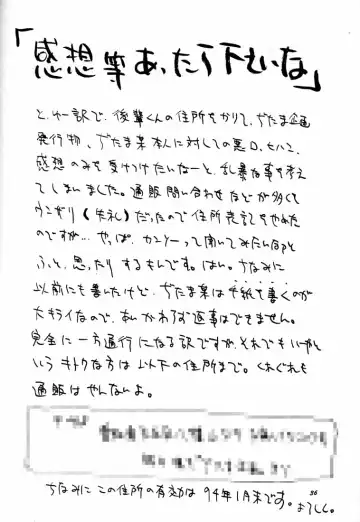 「感想等あったら下さいな」
と、いう訳で、後輩くんの住所をかりて、ずたま企画
発行物、ずたま某本人に対しての悪口、ヒハン、
感想のみを受けつけたいなーと、乱暴な事を考え
てしまいました。通販問い合わせなどが多くて
ウンザリ(失礼)だったので住所表記をやめた
のですが…やっぱ、カンソーって聞いてみたいなァと
ふと、思ったりするもんです。はい。ちなみに
以前にも書いたけど、ずたま某は手紙を書くのが
大キライなので、あいかわらず返事はできません。
完全に一方通行になる訳ですが、それでもいーかと
いうキトクな方は以下の住所まで。くれぐれも
通販はやんないよ。
ちなみにこの住所の有効は94年1月末です。よろしく。